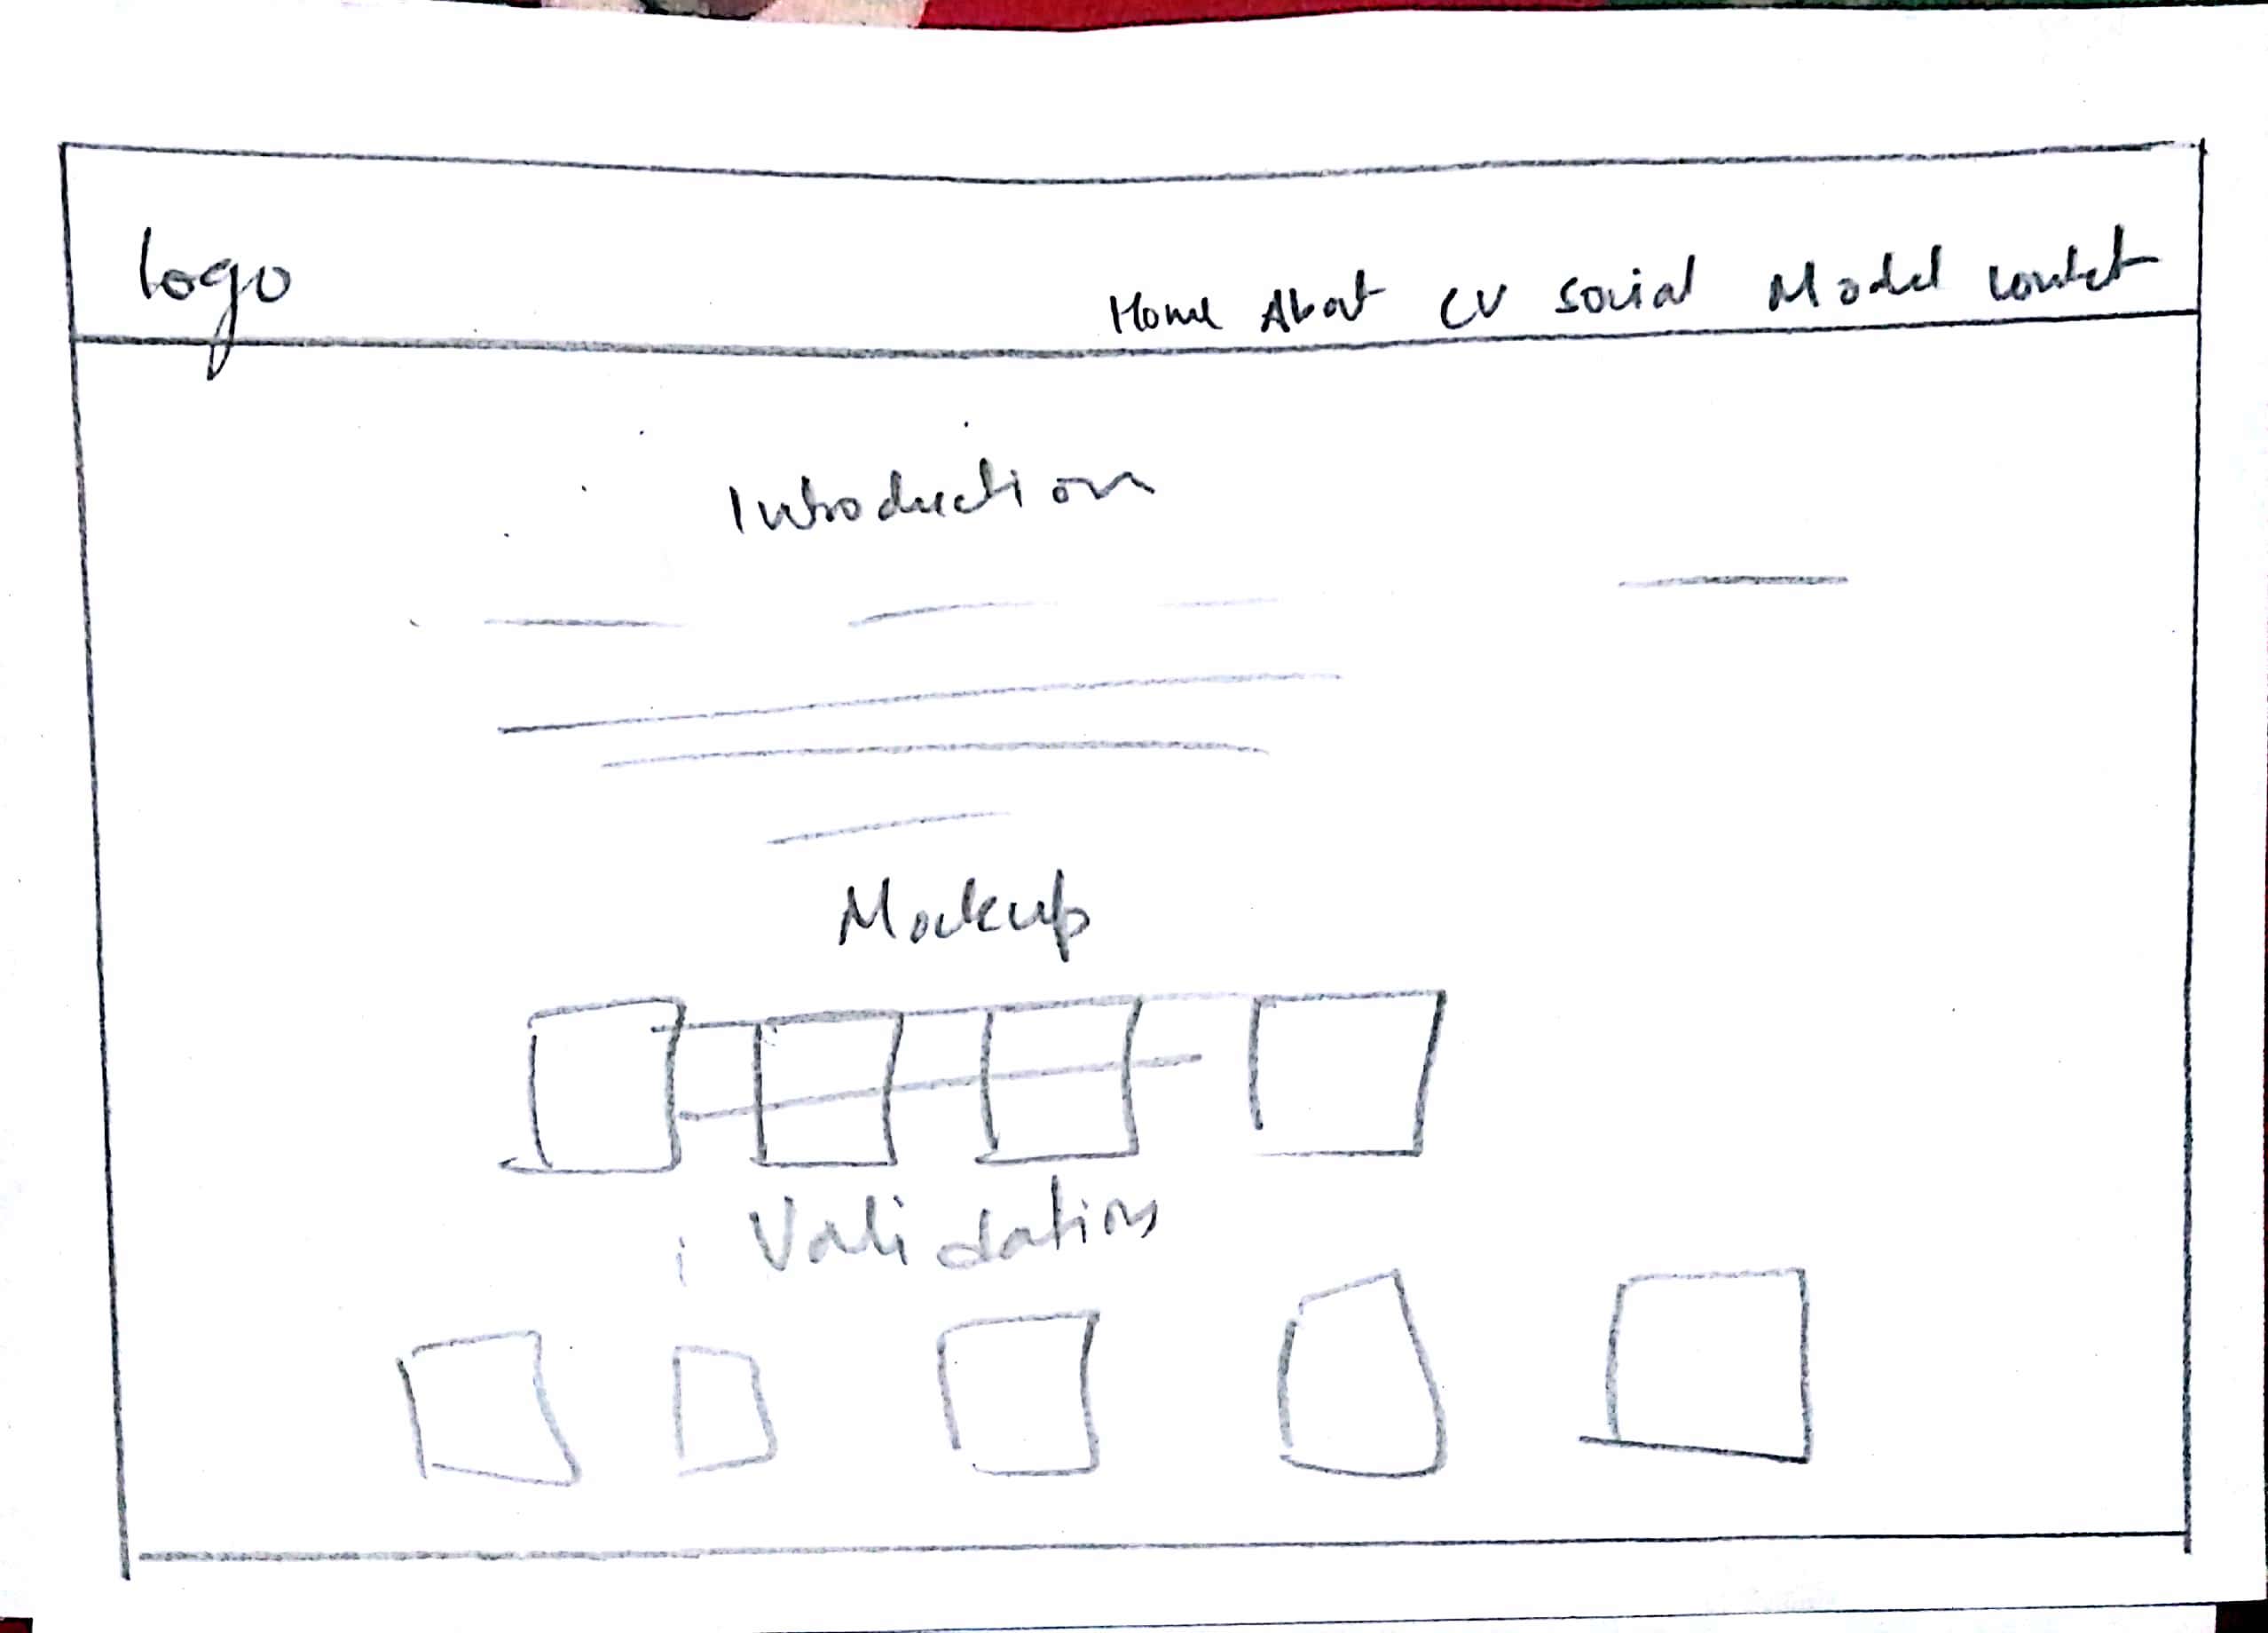 logo
Home About CV Social Model Contact
Introduction
Mockup
Validation